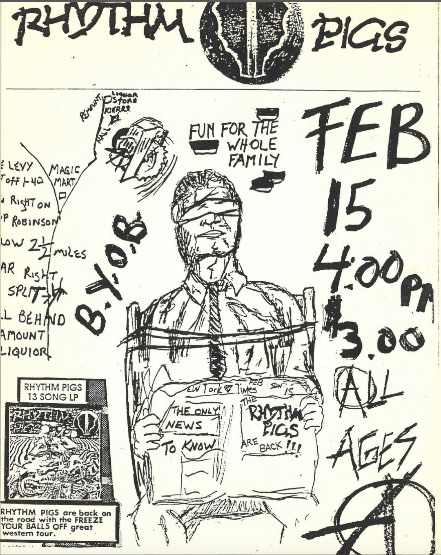 RHYTHM PIGS
PENNANT
LIQUOR
STORE
PIERRE
HALL
FUN FOR THE
WHOLE
FAMILY
FEB
15
4:00 PM
$3.00
ALL
AGES
LEVY
OFF I-40
MAGIC
MART
RIGHT ON
ROBINSON
2 1/2 MILES
RIGHT
SPLIT
BEHIND
AMOUNT
LIQUOR.
B.Y.O.B.
TIMES
FEB
SUN
15
THE ONLY
NEWS
TO KNOW
THE
RHYTHM
PIGS
ARE
BACK!!!
RHYTHM PIGS
13 SONG LP
RHYTHM PIGS
RHYTHM PIGS are back on
the road with the FREEZE
YOUR BALLS OFF great
western tour.